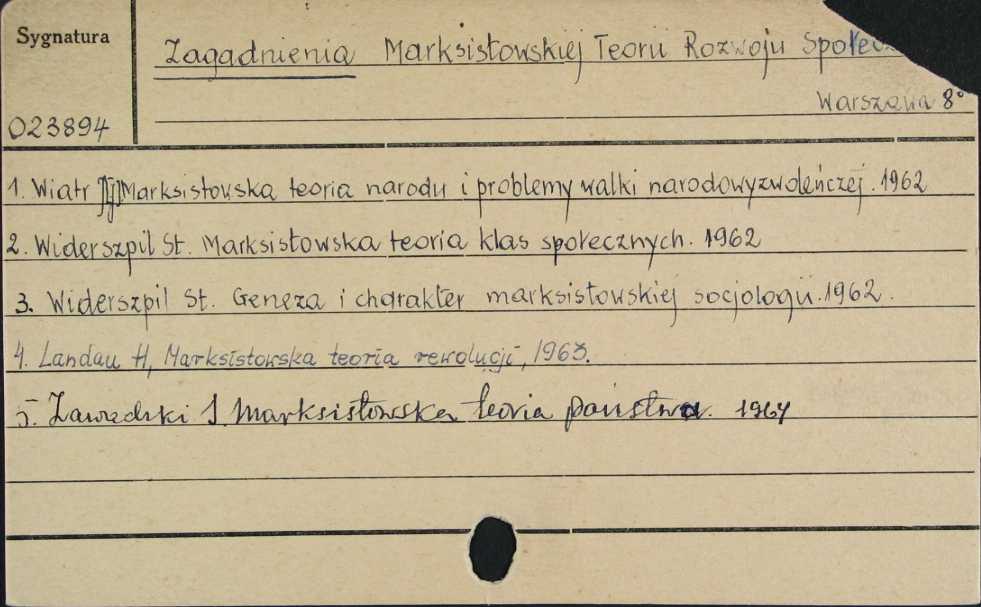 Sygnatura
Zagadnienia Marksistowskiej Teorii Rozwoju Społecz
Warszawa 8°
023894
1. Wiatr JJ Marksistowska teoria narodu i problemy walki narodowyzwoleńczej. 1962
2. Widerszpil St. Marksistowska teoria klas społecznych. 1962
3. Widerszpil St. Geneza i charakter marksistowskiej socjologii. 1962.
4. Landau H, Marksistowska teoria rewolucji, 1963.
5. Zawadzki S. Marksistowska teoria państwa. 1964